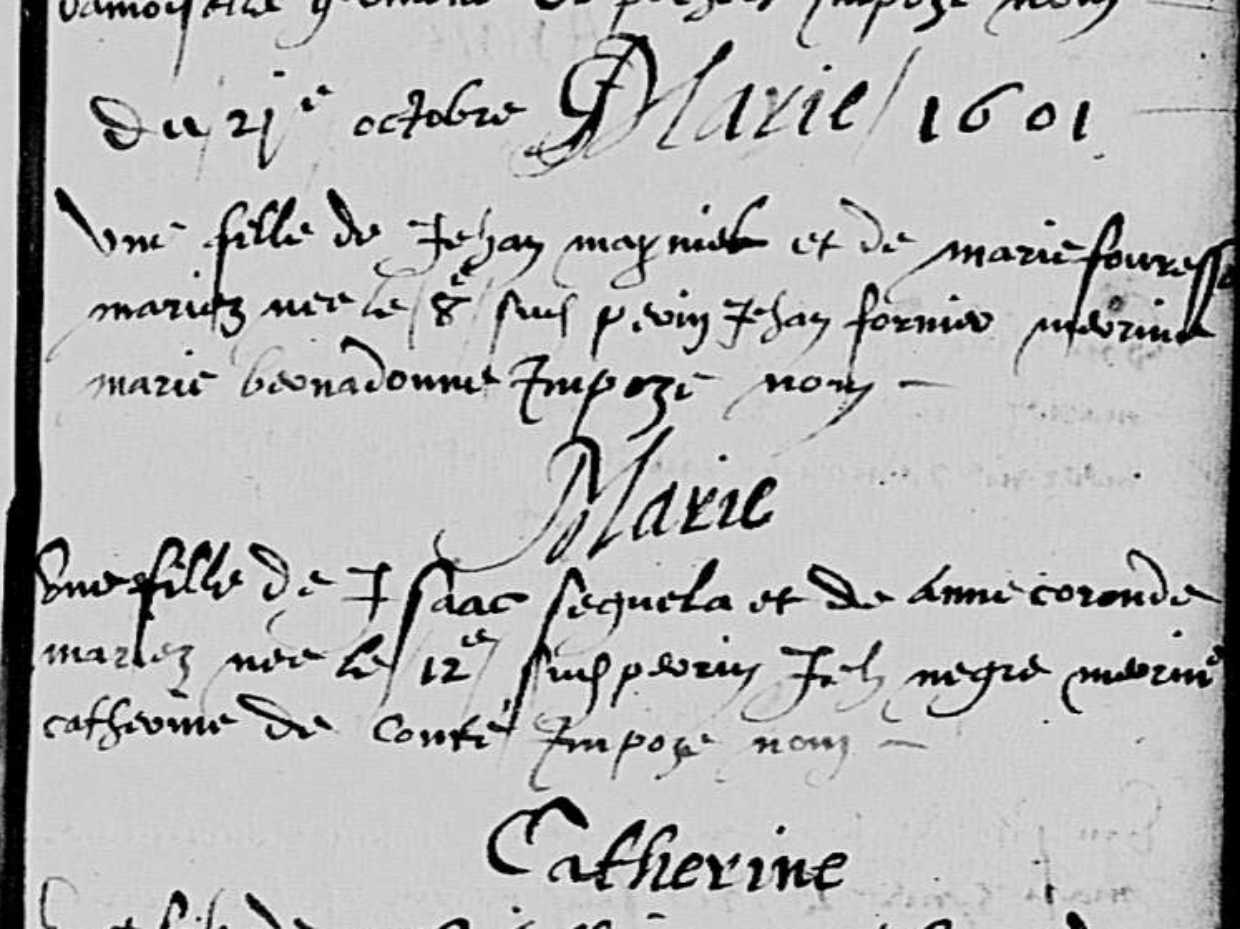 damoyselle
impozé nom
du 21e octobre Marie 1601
Une fille de Jehan magniel et de marie fouresse
mariez nee le 8e sus perin Jehan fornier merine
marie bernadonne Impozé nom
Marie
Une fille de Isaac sequela et de anne coronde
mariez nee le 12e sus perrin Jeh negre merine
catherine de Conte Impoze nom
Catherine